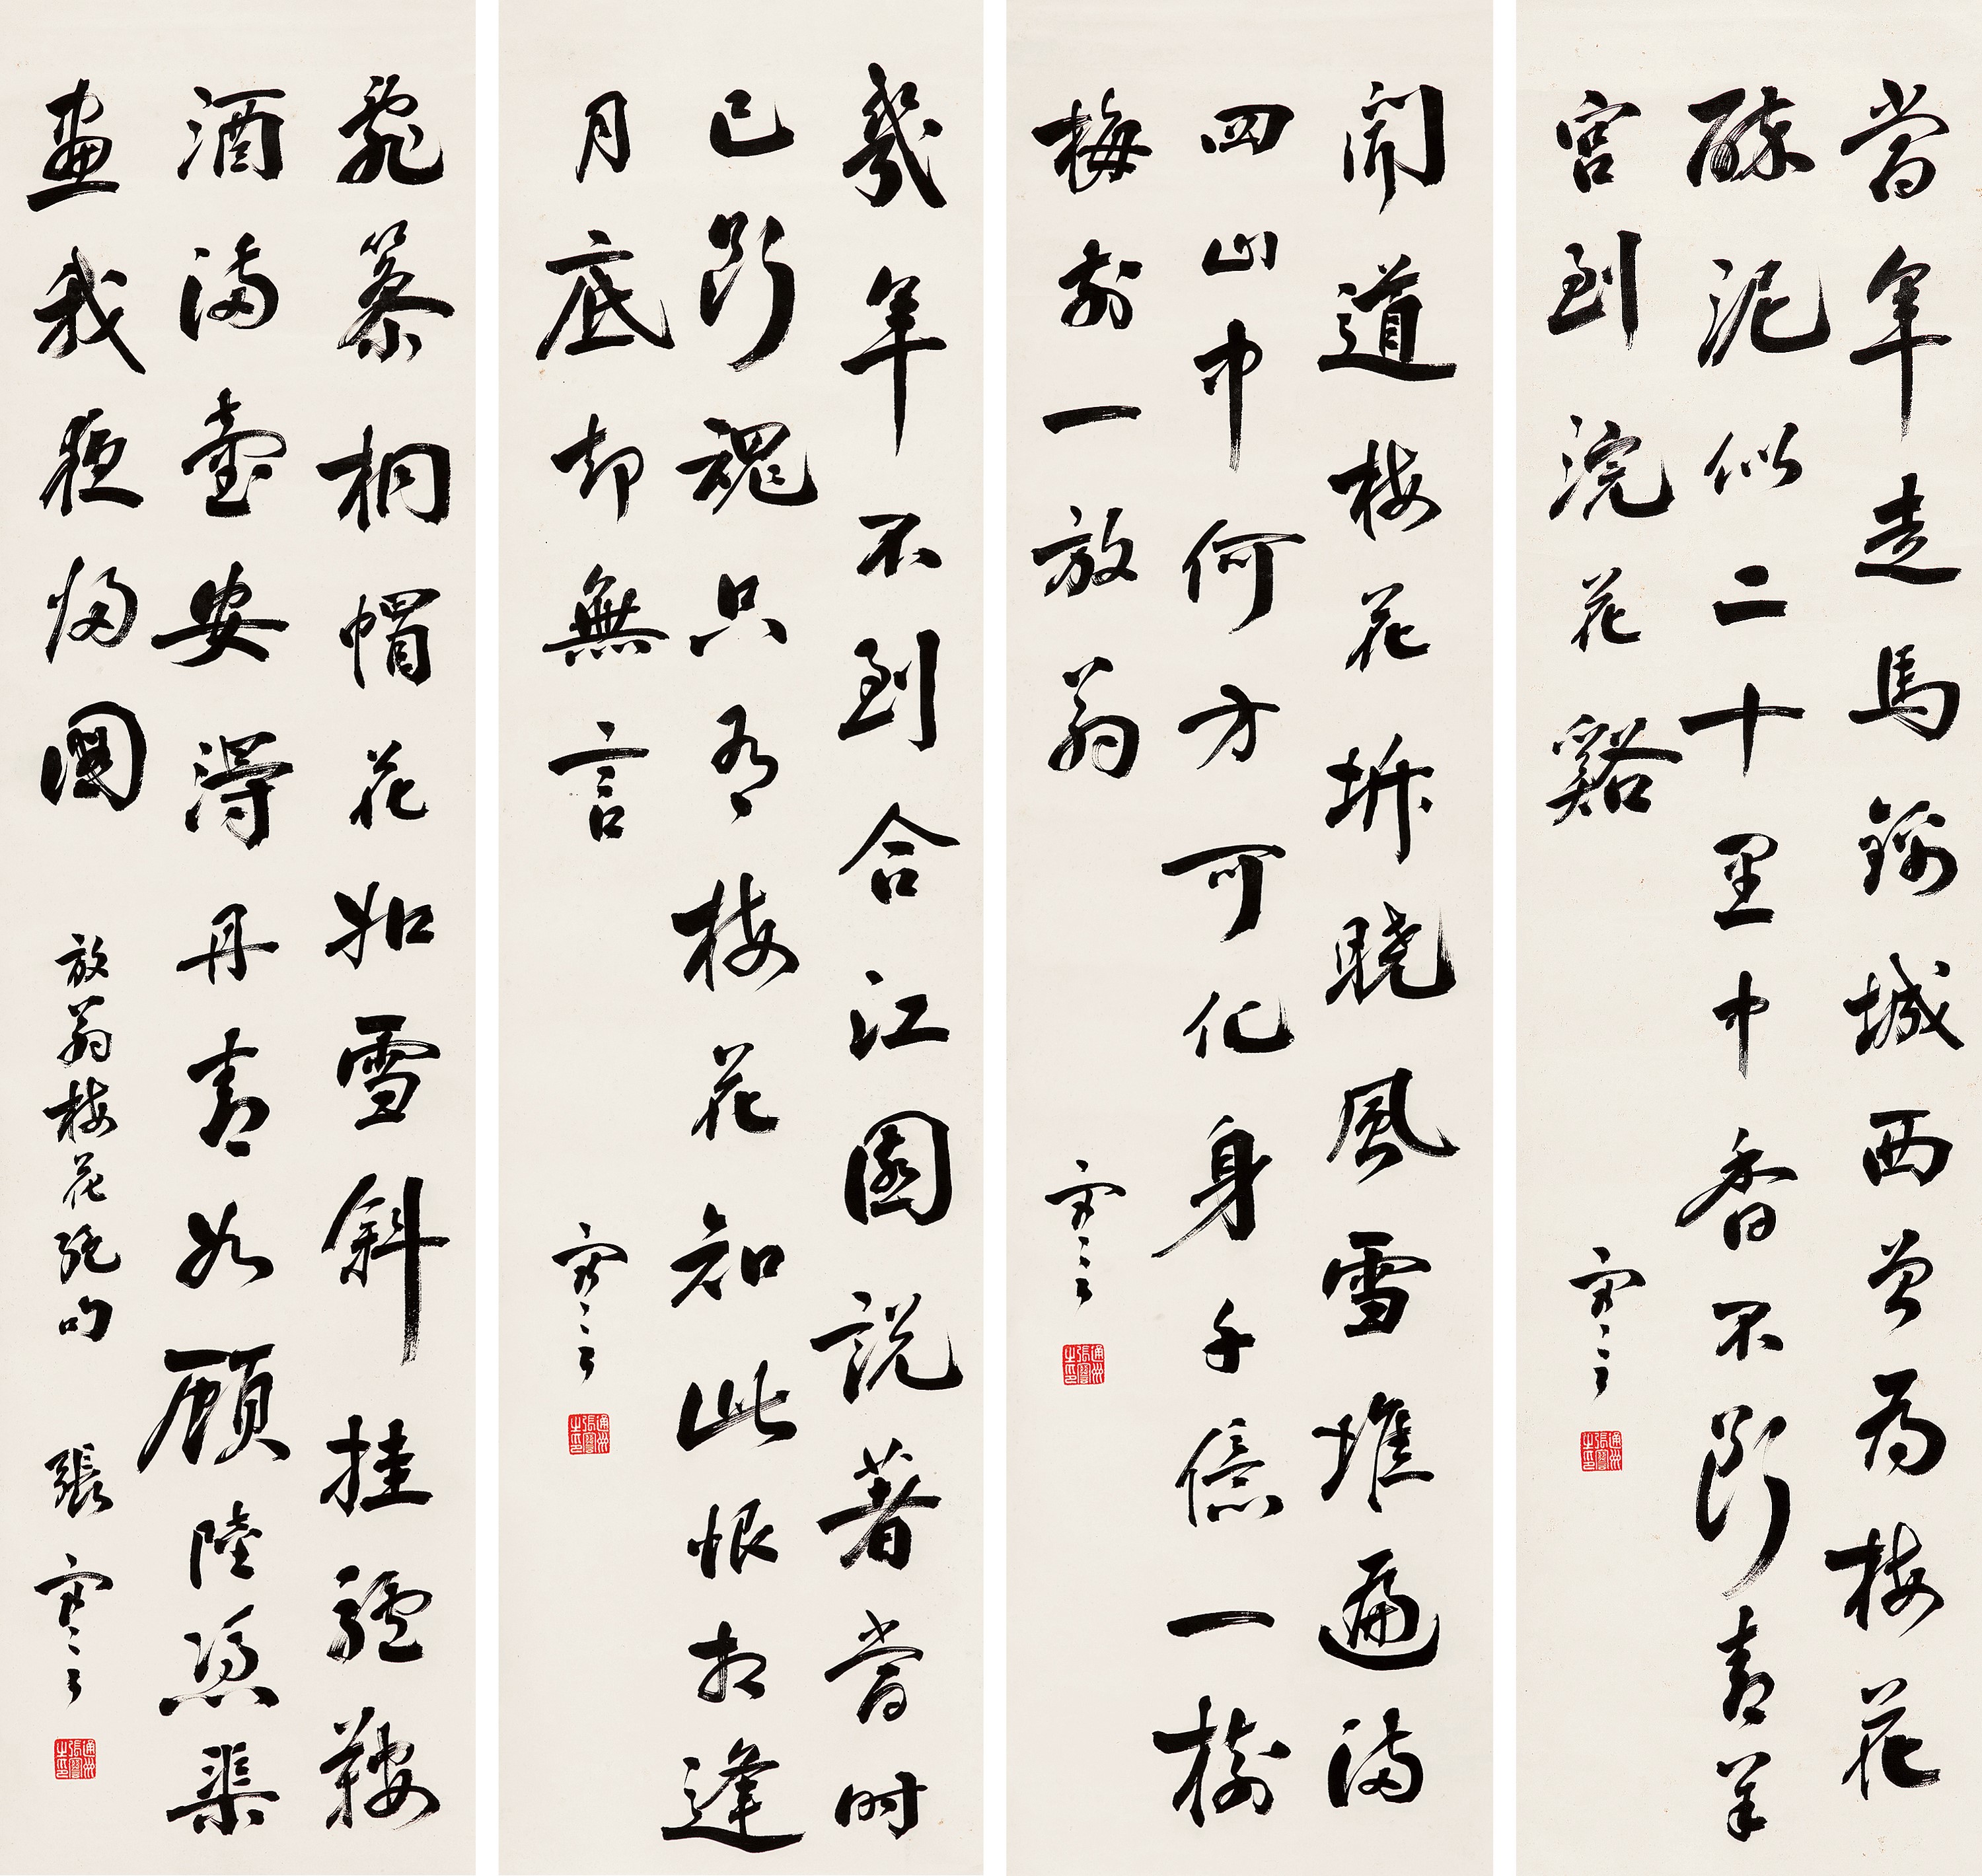 當年走馬錦城西曾為梅花
醉泥似二十里中香不斷青羊
宮到浣花谿
謇
通州張謇之印
聞道梅花坼曉風雪堆遍滿
四山中何方可化身千億一樹
梅前一放翁
謇
通州張謇之印
幾年不到合江園說著當時
已斷魂只有梅花知此恨相逢
月底却無言
謇
通州張謇之印
亂篸桐帽花如雪斜挂驢鞍
酒滿壺安得丹青如顧陸憑渠
畫我夜歸圖 放翁梅花絕句 張謇
通州張謇之印